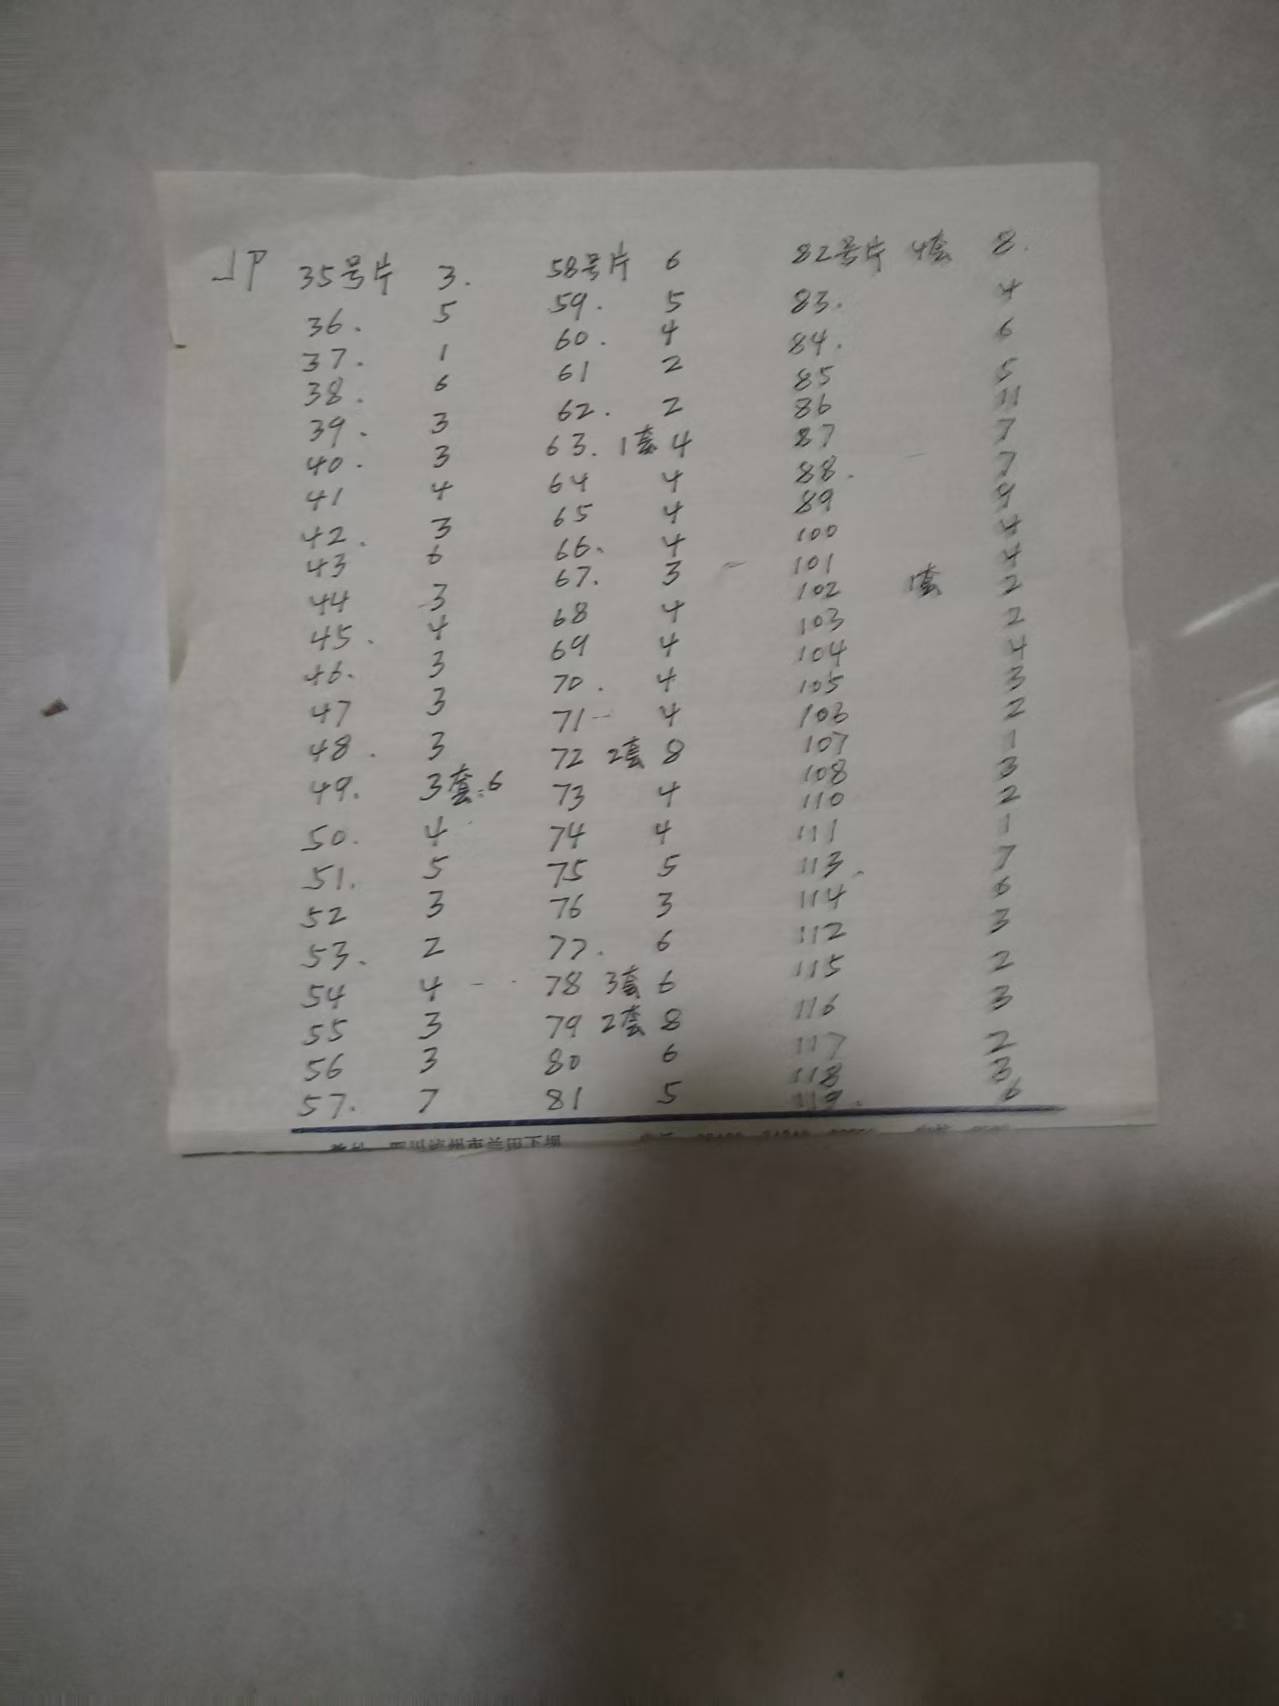 JP 35号片 3. 58号片 6 82号片 4套 8.
36. 5 59. 5 83. 4
37. 1 60. 4 84. 6
38. 6 61 2 85 5
39. 3 62. 2 86 11
40. 3 63. 1套 4 87 7
41 4 64 4 88. 7
42. 3 65 4 89
43 6 66. 4 100 4
44 3 67. 3 101 4
45. 4 68 4 102 1套 2
46. 3 69 4 103 2
47 3 70. 4 104 4
48. 3 71 4 105 3
49. 3套:6 72 2套 8 106 2
50. 4 73 4 107 1
51. 5 74 4 108 3
52 3 75 5 110 2
53. 2 76 3 111 1
54 4 77. 6 113. 7
55 3 78 3套 6 114 6
56 3 79 2套 8 112 3
57. 7 80 6 115 2
81 5 116 3
117 2
118 3
119. 6